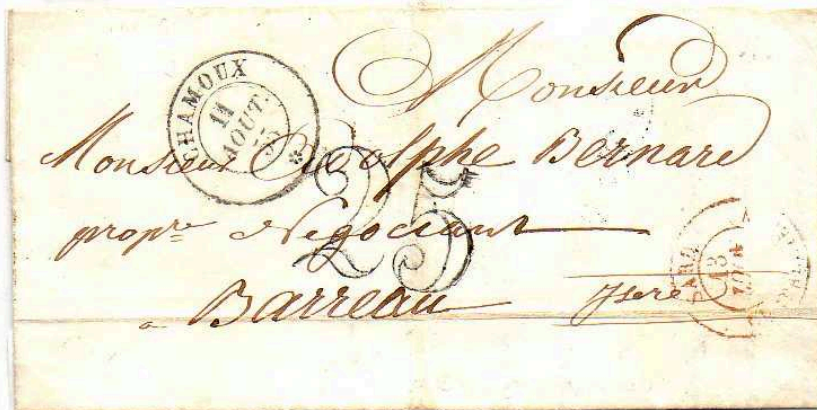 CHAMOUX
11
AOUT
Monsieur
Monsieur Adolphe Bernard
propre Négociant
25
a Barreau Isere